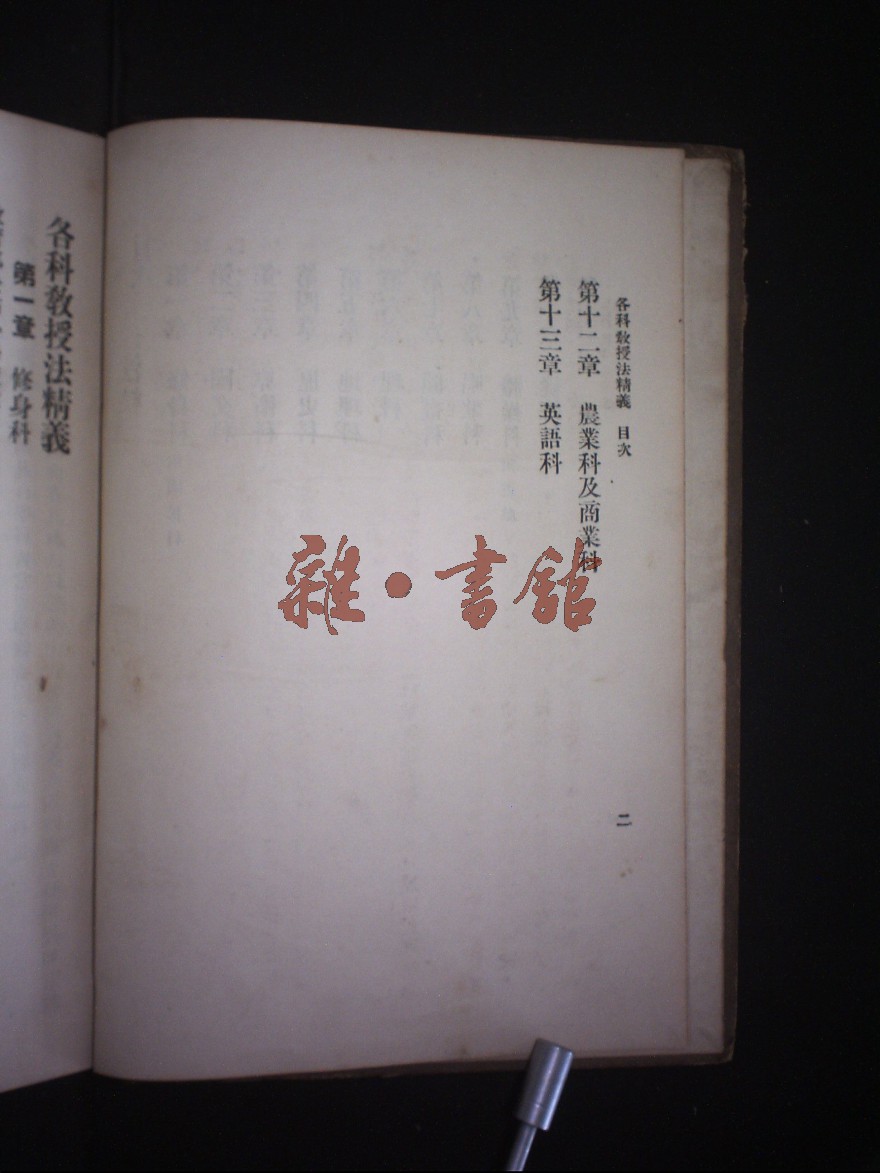 各科敎授法精義　目次
第十二章　農業科及商業科
第十三章　英語科
二
各科敎授法精義
第一章　修身科
雜・書館